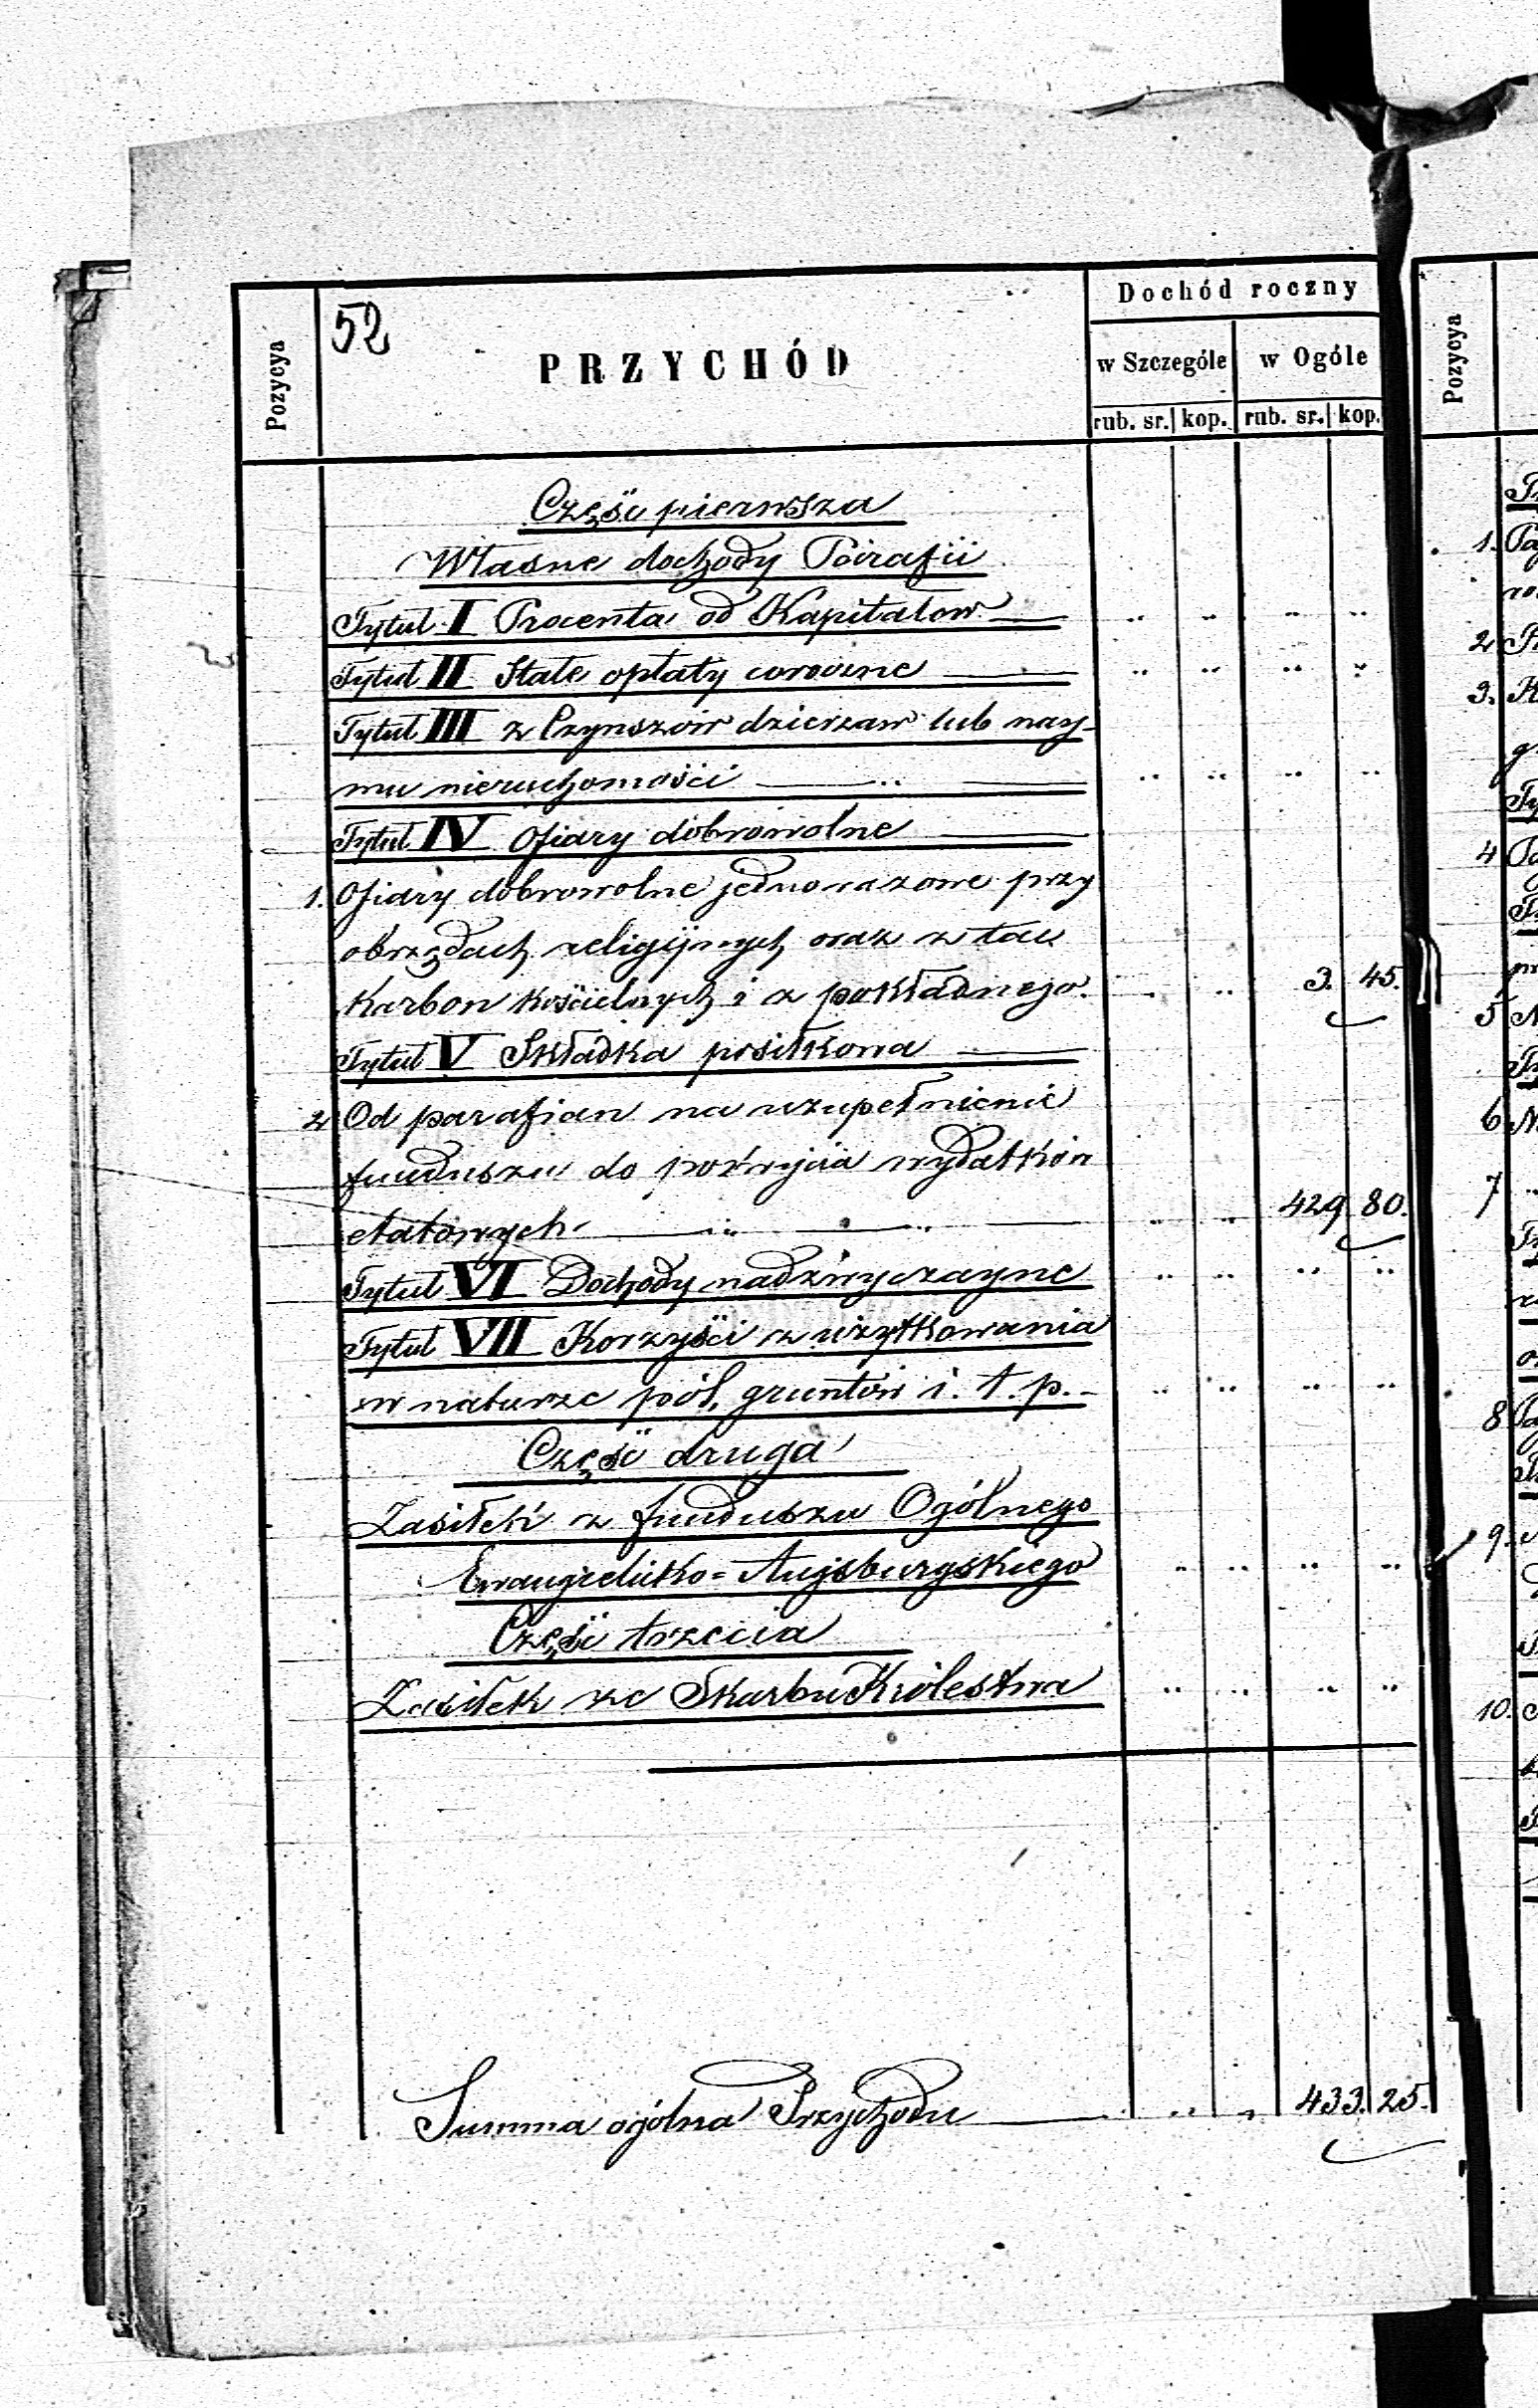 52
Pozycya
PRZYCHÓD
Dochód roczny
w Szczególe w Ogóle
rub. sr. kop. rub. sr. kop.
Część pierwsza
Własne dochody Parafii
Tytuł I Procenta od Kapitałow
Tytuł II Stałe opłaty coroczne
Tytuł III z Czynszów dzierzaw lub nay-
mu nieruchomości
Tytuł IV Ofiary dobrowolne
1. Ofiary dobrowolne jednorazowe przy
obrzędach religijnych oraz z tac
Karbon kościelnych i z pokładnego. 3. 45.
Tytuł V Składka posiłkowa
2 Od parafian na uzupełnienie
funduszu do pokrycia wydatków
etatowych 429 80.
Tytuł VI Dochody nadzwyczayne
Tytuł VII Korzyści z użytkowania
w naturze pól, gruntów i. t. p.
Część druga
Zasiłek z funduszu Ogólnego
Ewangielicko=Augsburgskiego
Część trzecia
Zasiłek ze Skarbu Królestwa
Summa ogólna Przychodu 433. 25.
Pozycya
1.
2
3.
4
5
6
7
8
9.
10.